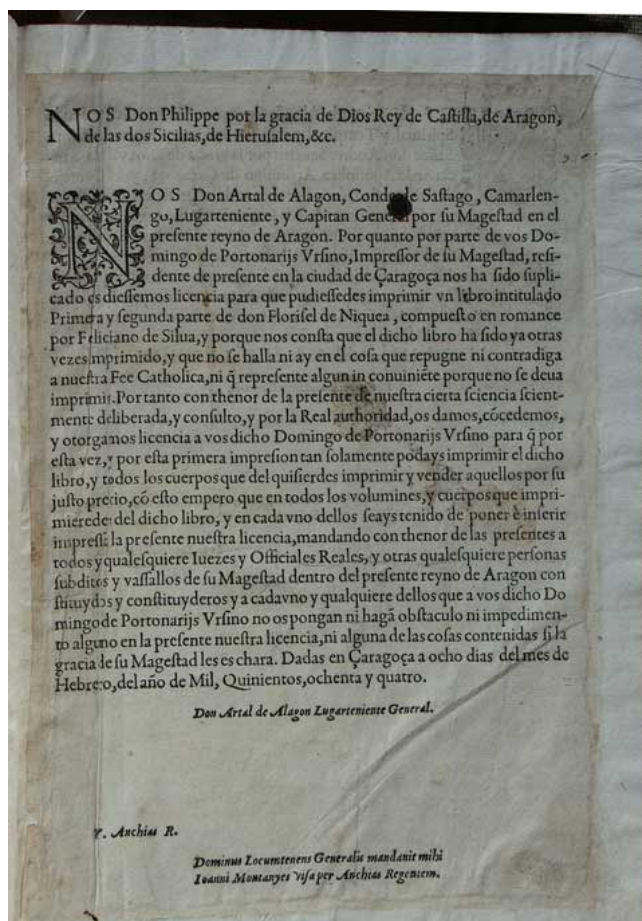 NOS Don Philippe por la gracia de Dios Rey de Caſtilla,de Aragon,
de las dos Sicilias,de Hieruſalem,&c.
NOS Don Artal de Alagon, Conde de Saſtago, Camarlen-
go,Lugarteniente, y Capitan General por ſu Mageſtad en el
preſente reyno de Aragon. Por quanto por parte de vos Do-
mingo de Portonarijs Vrſino,Impreſſor de ſu Mageſtad, reſi-
dente de preſente en la ciudad de Çaragoça nos ha ſido ſupli-
cado os dieſſemos licencia para que pudieſſedes imprimir vn libro intitulado
Primera y ſegunda parte de don Floriſel de Niquea, compueſto en romance
por Feliciano de Silua,y porque nos conſta que el dicho libro ha ſido ya otras
vezes imprimido,y que no ſe halla ni ay en el coſa que repugne ni contradiga
a nueſtra Fee Catholica,ni q̃ repreſente algun in conuiniẽte porque no ſe deua
imprimir.Por tanto con thenor de la preſente de nueſtra cierta ſciencia ſcient-
mente deliberada,y conſulto,y por la Real authoridad,os damos,cõcedemos,
y otorgamos licencia a vos dicho Domingo de Portonarijs Vrſino para q̃ por
eſta vez,y por eſta primera impreſion tan ſolamente podays imprimir el dicho
libro,y todos los cuerpos que del quiſierdes imprimir y vender aquellos por ſu
juſto precio,cõ eſto empero que en todos los volumines,y cuerpos que impri-
mieredes del dicho libro, y en cada vno dellos ſeays tenido de poner è inſerir
impreſſa la preſente nueſtra licencia,mandando con thenor de las preſentes a
todos y qualeſquiere Iuezes y Officiales Reales, y otras qualeſquiere perſonas
ſubditos y vaſſallos de ſu Mageſtad dentro del preſente reyno de Aragon con
ſtituydos y conſtituyderos y a cadavno y qualquiere dellos que a vos dicho Do
mingo de Portonarijs Vrſino no os pongan ni hagã obſtaculo ni impedimen-
to alguno en la preſente nueſtra licencia,ni alguna de las coſas contenidas ſi la
gracia de ſu Mageſtad les es chara. Dadas en Çaragoça a ocho dias del mes de
Hebrero,del año de Mil, Quinientos,ochenta y quatro.
Don Artal de Alagon Lugarteniente General.
V. Anchias R.
Dominus Locumtenens Generalis mandauit mihi
Ioanni Montanyes viſa per Anchias Regentem.